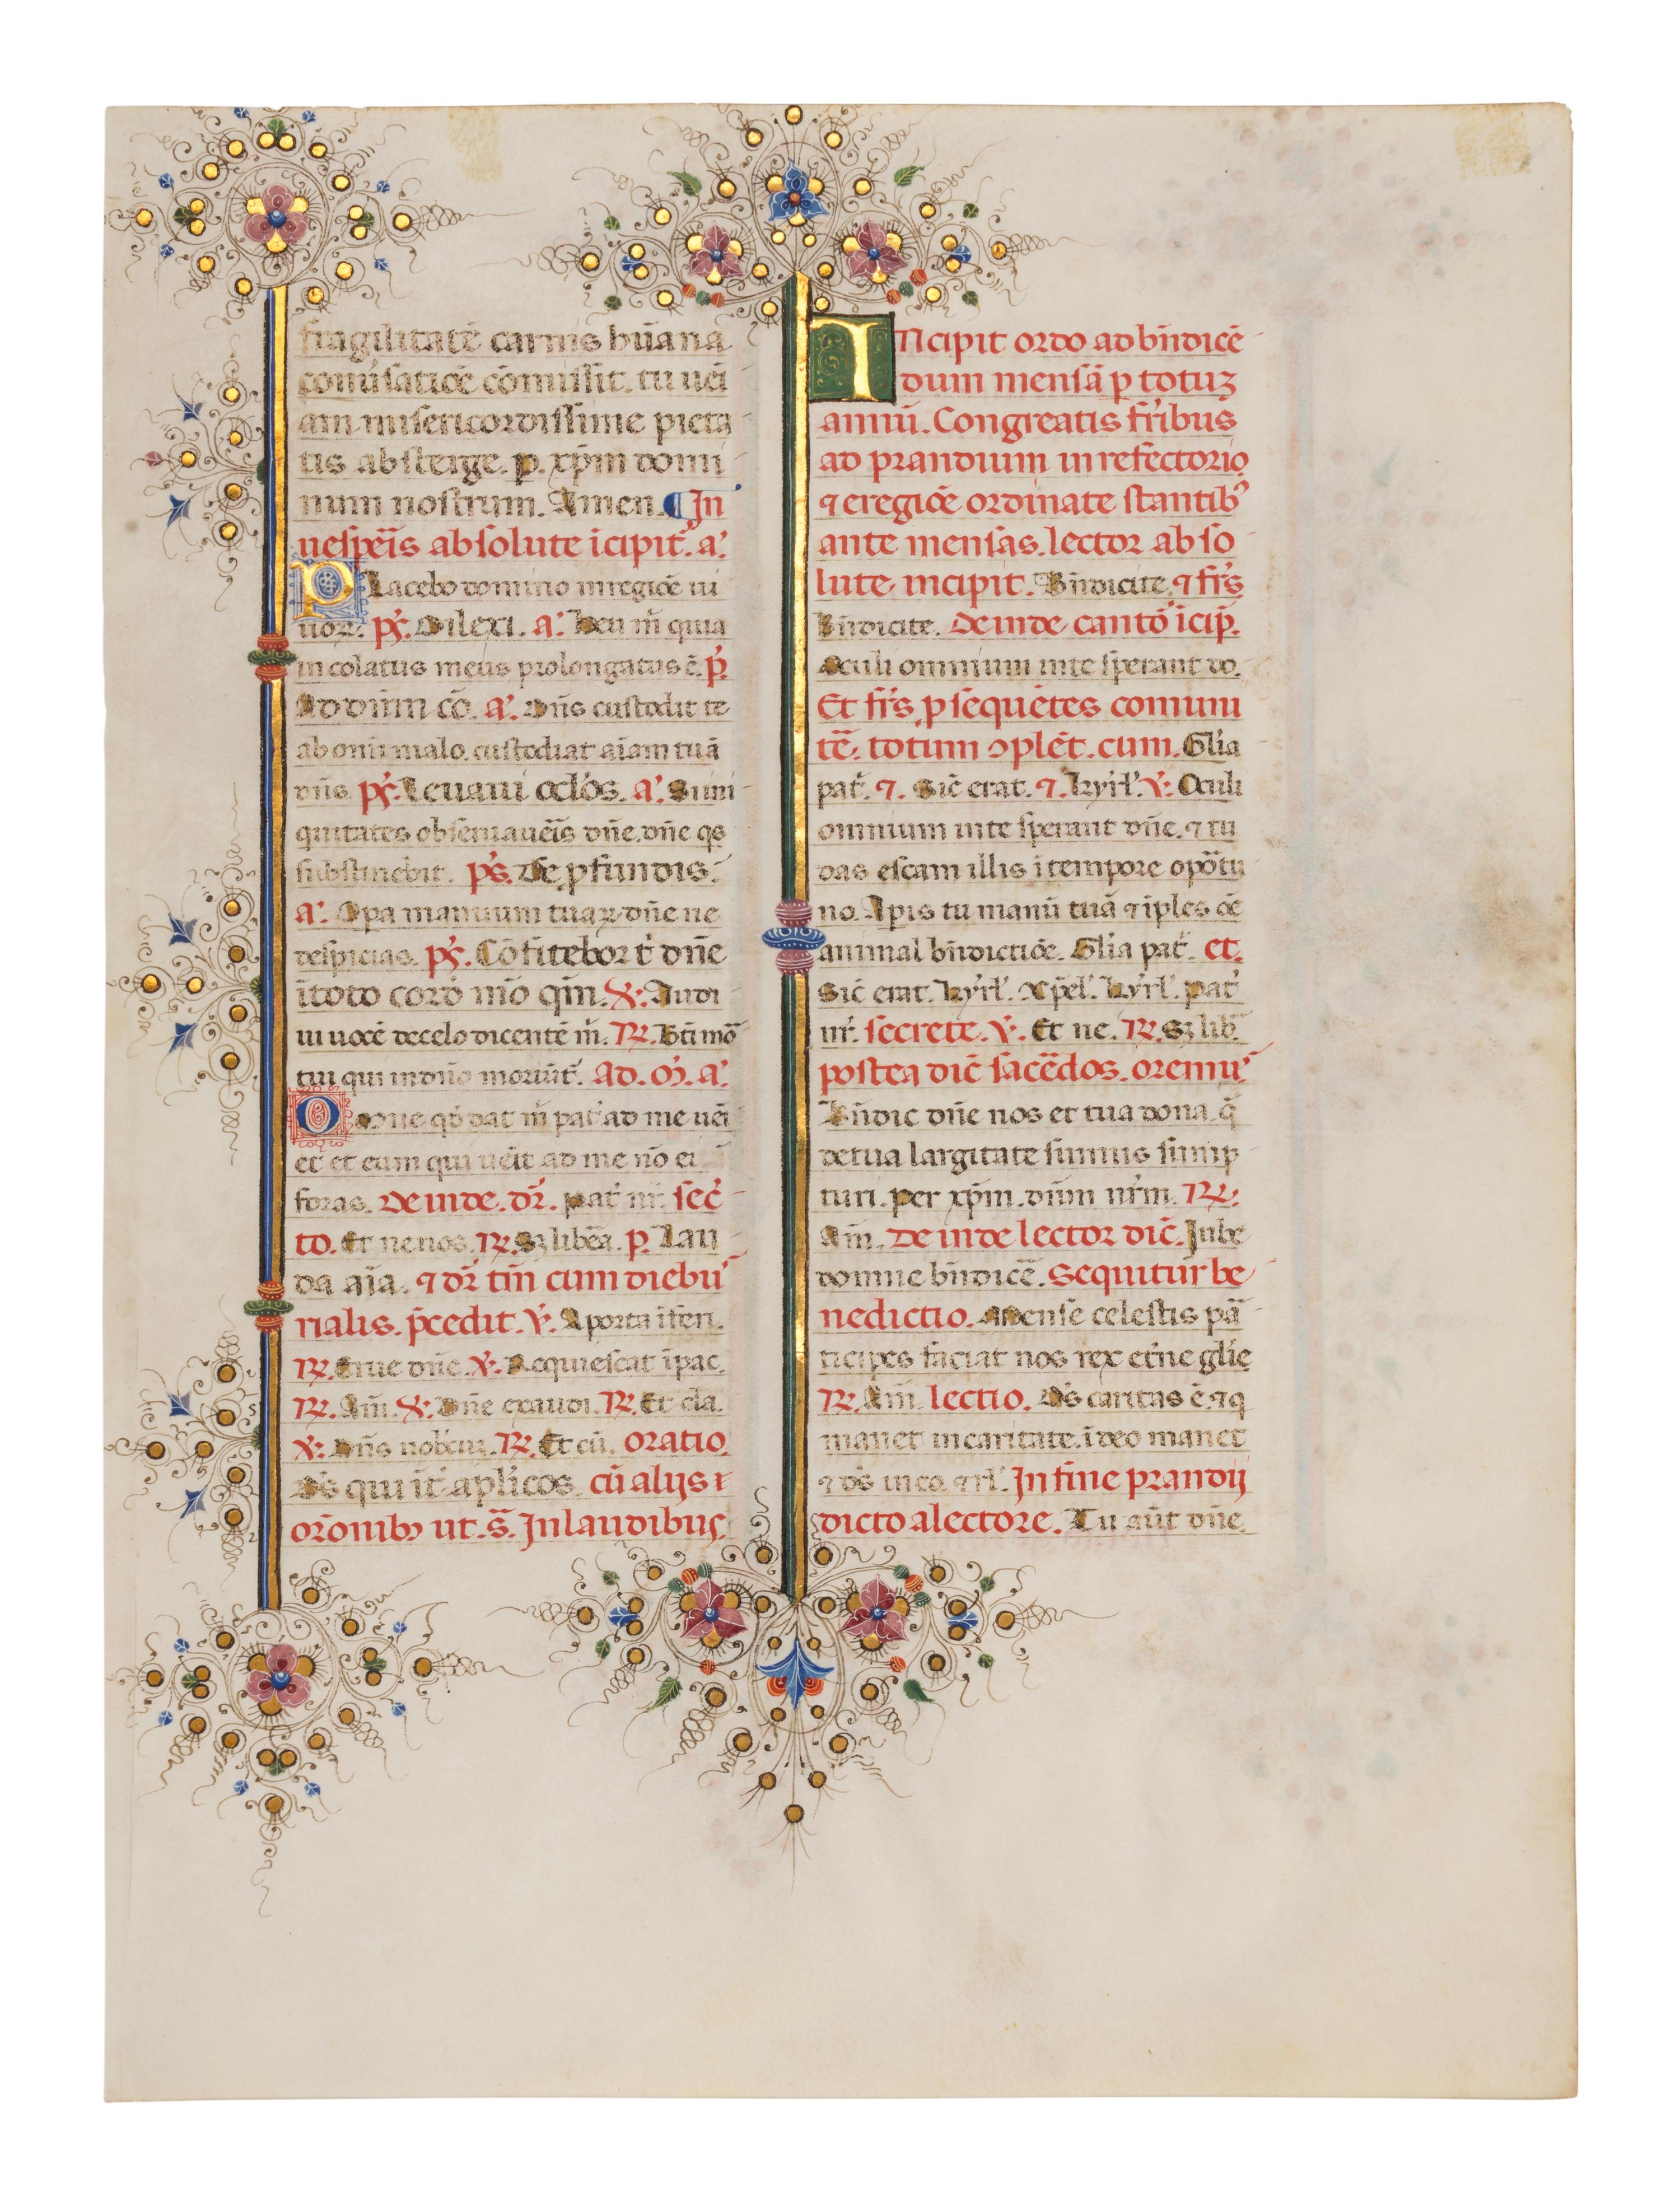 fragilitatē carnis hūana
cōuīsatiōe cōmisit. tu ueī
am misericordissime pieta
tis absterge. p. xp̄m domi
num nostrum. Amen. ¶ In
uesp̄eīs absolute icipit̄. a᾽.
Placebo domino inregiōe ui
uoꝝ. pš. Dilexi. a᾽. Heu m̄ quia
incolatus meus prolongatus ē. p̄.
Ad dūm cō. a᾽. Dn̄s custodit te
ab om̄i malo. custodiat aīam tuā
dn̄s. pš. Leuaui oclōs. a᾽. Si ini
quitates obseruaueīs dn̄e. dn̄e qs
substinebit. pš. De pfundis.
a᾽. Opa manuum tuaꝝ dn̄e ne
despicias. pš. Cōfitebor t᾽ dn̄e
ī toto cord̄ mō qm̄. ℣. Audi
ui uocē decelo dicentē m̄. ℞. Bt̄i mō
tui qui in dn̄o moriūt᾽. Ad. M. a᾽.
Omne qd̄ dat m̄ pat᾽ ad me ueī
et et eum qui ueīt ad me nō ei
foras. Deinde. dr̄. pat᾽ nr̄. sec᾽
to. Et nenos. ℞. Sꝫ libēa. p. Lau
da aīa. ⁊ dr̄ tm̄ cum diebu᾽
rialis. p̄cedit. ℣. A porta īferi.
℞. Erue dn̄e. ℣. Requiescat īpac.
℞. Am̄. ℣. Dn̄e exaudi. ℞. Et cla.
℣. Dn̄s nobcuꝫ. ℞. Et cū. oratio.
Ds᾽ qui īt᾽ aplicos. cū alijs ⁊
orōnibꝫ ut. s̄. In laudibus
INcipit ordo ad bn̄dicē
dum mensā p totuꝫ
annū. Congreatis fr̄ibus
ad prandium in refectorio
⁊ eregiōe ordinate stantib᾽
ante mensas. lector abso
lute incipit. Bn̄dicite. ⁊ fr̄s
Bn̄dicite. Deinde cantō᾽ icip̄.
Oculi omnium inte sperant do.
Et fr̄s psequētes comuni
tē. totum ꝯplēt. cum. Glīa
pat᾽. ⁊. Sic̄ erat. ⁊. kyrl᾽. ℣. Oculi
omnium inte sperant dn̄e. ⁊ tu
das escam illis ī tempore opōtu
no. Apis tu manū tuā ⁊ īples ōe
animal bn̄dictiōe. Glīa pat᾽. et.
Sic̄ erat. kyrl᾽. Xp̄el᾽. kyrl᾽. pat᾽
nr̄. secrete. ℣. Et ne. ℞. Sꝫ lib᾽.
postea dic̄ sacēdos. oremu᾽
Bn̄dic dn̄e nos et tua dona. q̄
de tua largitate sumus sump
turi. per xp̄m. dn̄m nr̄m. ℞.
Am̄. Deinde lector dic̄. Jube
domne bn̄dicē. Sequitur be
nedictio. Mense celestis pā
ticipes faciat nos rex etn̄e glīe
℞. Am̄. lectio. Ds᾽ caritas ē. ⁊ q
manet in caritate. ī deo manet
⁊ ds᾽ in eo. ⁊ rl᾽. In fine prandij
dicto alectore. Tu aūt dn̄e.